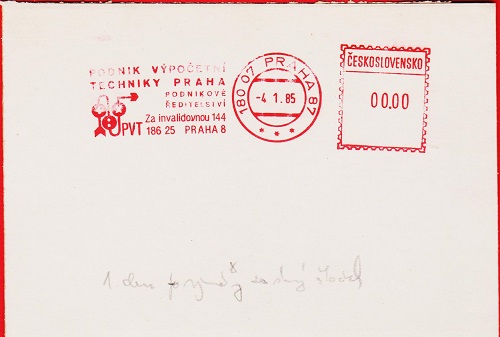 PODNIK VÝPOČETNÍ
TECHNIKY PRAHA
PODNIKOVÉ
ŘEDITELSTVÍ
PVT Za invalidovnou 144
186 25 PRAHA 8
180 07 PRAHA 87
-4. 1. 85
* * *
ČESKOSLOVENSKO
00.00
1 den